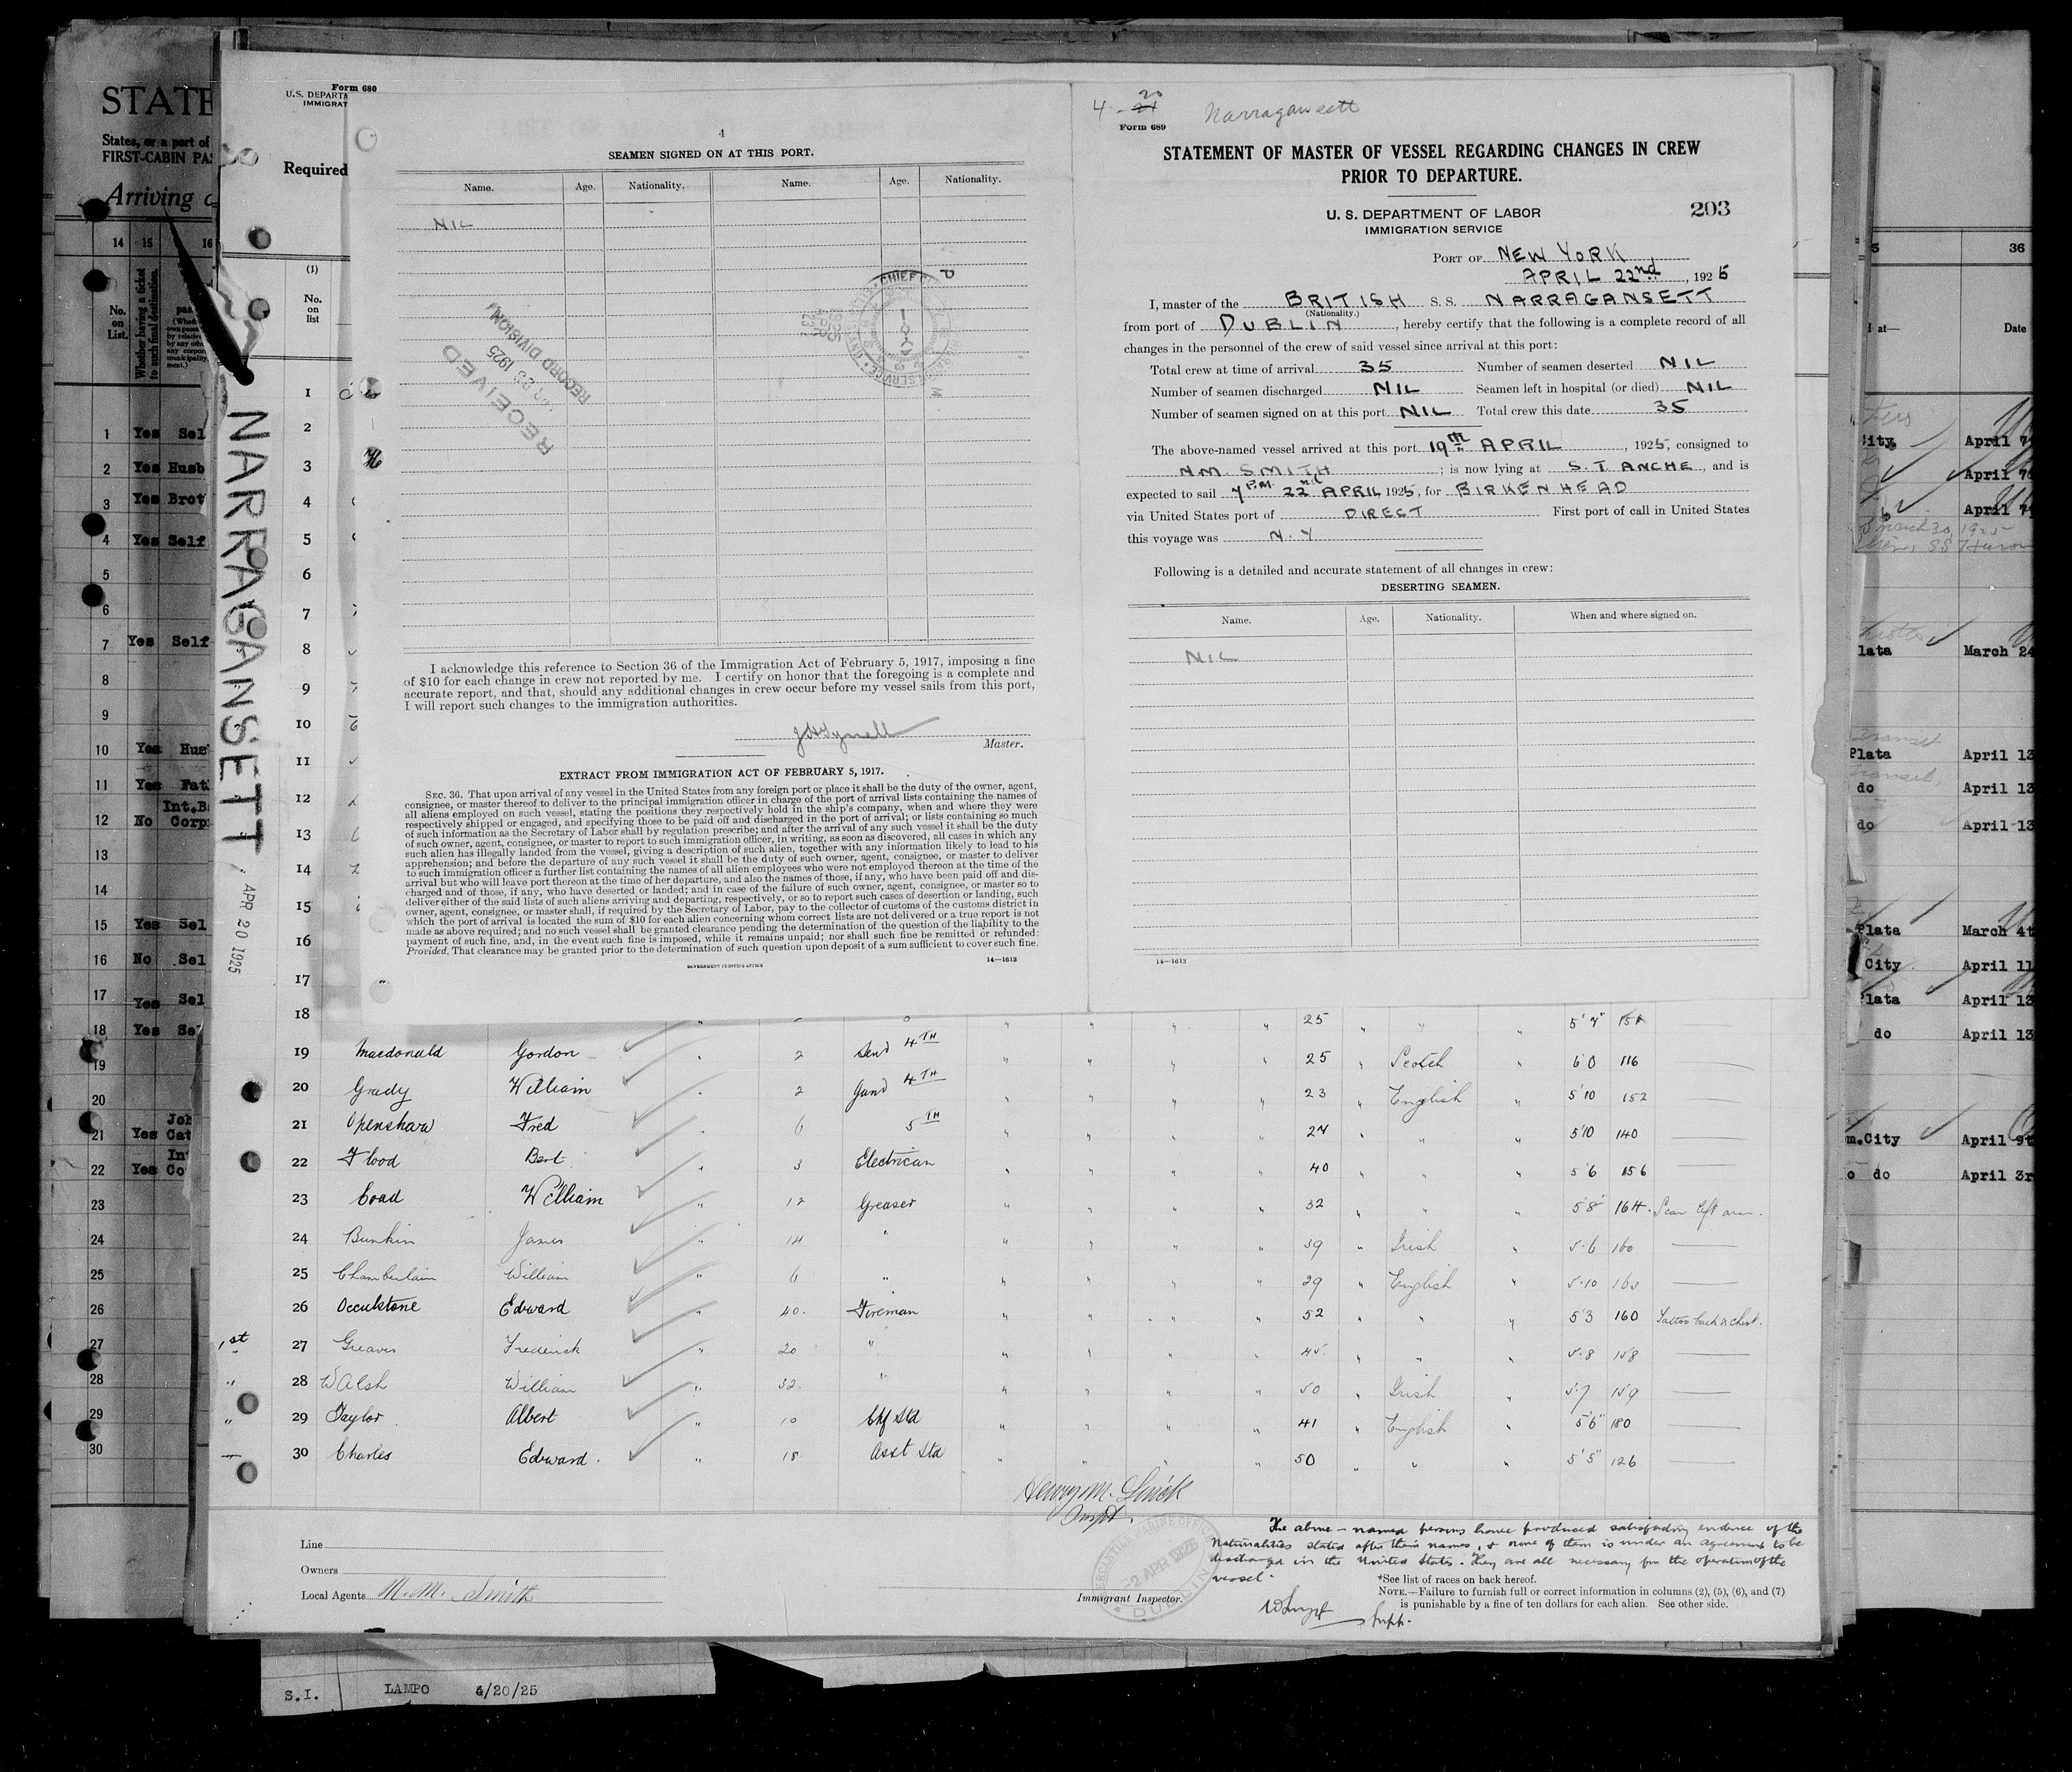 Form 680
U.S. DEPARTA
IMMIGRAT
Required
(1)
No.
on
list
4
SEAMEN SIGNED ON AT THIS PORT.
Name. Age. Nationality. Name. Age. Nationality.
NIL
RECEIVED
RECORD DIVISION
I acknowledge this reference to Section 36 of the Immigration Act of February 5, 1917, imposing a fine
of $10 for each change in crew not reported by me. I certify on honor that the foregoing is a complete and
accurate report, and that, should any additional changes in crew occur before my vessel sails from this port,
I will report such changes to the immigration authorities.
Master.
EXTRACT FROM IMMIGRATION ACT OF FEBRUARY 5, 1917.
SEC. 36. That upon arrival of any vessel in the United States from any foreign port or place it shall be the duty of the owner, agent,
consignee, or master thereof to deliver to the principal immigration officer in charge of the port of arrival lists containing the names of
all aliens employed on such vessel, stating the positions they respectively hold in the ship's company, when and where they were
respectively shipped or engaged, and specifying those to be paid off and discharged in the port of arrival; or lists containing so much
of such information as the Secretary of Labor shall by regulation prescribe; and after the arrival of any such vessel it shall be the duty
of such owner, agent, consignee, or master to report to such immigration officer, in writing, as soon as discovered, all cases in which any
such alien has illegally landed from the vessel, giving a description of such alien, together with any information likely to lead to his
apprehension; and before the departure of any such vessel it shall be the duty of such owner, agent, consignee, or master to deliver
to such immigration officer a further list containing the names of all alien employees who were not employed thereon at the time of the
arrival but who will leave port thereon at the time of her departure, and also the names of those, if any, who have been paid off and dis-
charged and of those, if any, who have deserted or landed; and in case of the failure of such owner, agent, consignee, or master so to
deliver either of the said lists of such aliens arriving and departing, respectively, or so to report such cases of desertion or landing, such
owner, agent, consignee, or master shall, if required by the Secretary of Labor, pay to the collector of customs of the customs district in
which the port of arrival is located the sum of $10 for each alien concerning whom correct lists are not delivered or a true report is not
made as above required; and no such vessel shall be granted clearance pending the determination of the question of the liability to the
payment of such fine, and, in the event such fine is imposed, while it remains unpaid; nor shall such fine be remitted or refunded:
Provided, That clearance may be granted prior to the determination of such question upon deposit of a sum sufficient to cover such fine.
GOVERNMENT PRINTING OFFICE 14—1613
4 - 20 Narragansett
Form 689
STATEMENT OF MASTER OF VESSEL REGARDING CHANGES IN CREW
PRIOR TO DEPARTURE.
U. S. DEPARTMENT OF LABOR 203
IMMIGRATION SERVICE
PORT OF NEW YORK
APRIL 22nd, 1925
I, master of the BRITISH S. S. NARRAGANSETT
(Nationality.)
from port of DUBLIN, hereby certify that the following is a complete record of all
changes in the personnel of the crew of said vessel since arrival at this port:
Total crew at time of arrival 35 Number of seamen deserted NIL
Number of seamen discharged NIL Seamen left in hospital (or died) NIL
Number of seamen signed on at this port NIL Total crew this date 35
The above-named vessel arrived at this port 19th APRIL, 1925, consigned to
NM. SMITH; is now lying at S.T ANCHE, and is
expected to sail 7 P.M. 22nd APRIL 1925, for BIRKENHEAD
via United States port of DIRECT First port of call in United States
this voyage was N.Y
Following is a detailed and accurate statement of all changes in crew:
DESERTING SEAMEN.
Name. Age. Nationality. When and where signed on.
NIL
14—1613
NARRAGANSETT, APR 20 1925
1
2
3
4
5
6
7
8
9
10
11
12
13
14
15
16
17
18 25 " " " 5'7"
19 Macdonald Gordon " 2 4TH " " " " 25 " Scotch " 6'0 116
20 Grady William " 2 4TH " " " " 23 " English " 5'10 152
21 Openshaw Fred " 6 5TH " " " " 27 " " " 5'10 140
22 Flood Bert " 3 Electrican " " " " 40 " " " 5'6 156
23 Coad William " 12 Greaser " " " " 32 " " " 5'8" 164 Scar left arm.
24 Bunkin James " 14 " " " " " 39 " Irish " 5.6 160
25 Chamberlain William " 6 " " " " " 29 " English " 5.10 163
26 Occulstone Edward " 40 Fireman " " " " 52 " " " 5'3 160 Tattoo back & chest.
1st 27 Greaves Frederick " 20 " " " " " 45 " " " 5.8 158
" 28 Walsh William " 32 " " " " " 50 " Irish " 5.7 159
" 29 Taylor Albert " 10 Chf Std " " " " 41 " English " 5'6" 180
30 Charles Edward " 18 Asst Std " " " " 50 " " " 5'5" 126
The above-named persons have produced satisfactory evidence of the
nationalities stated after their names, & none of them is under an agreement to be
discharged in the United States. They are all necessary for the operation of the
vessel.
Line
Owners
Local Agents M.M. Smith
MERCANTILE MARINE OFFICE
DUBLIN
Immigrant Inspector.
*See list of races on back hereof.
NOTE.—Failure to furnish full or correct information in columns (2), (5), (6), and (7)
is punishable by a fine of ten dollars for each alien. See other side.
S.I. LAMPO 4/20/25
STATE
States, or a part of
FIRST-CABIN PAS
Arriving
14 15 16
No.
on
List.
Whether having a ticket
to such final destination.
1 Yes Sel
2 Yes Husb
3 Yes Brot
4 Yes Self
5
6
7 Yes Self
8
9
10 Yes Hus
11 Yes Fat
12 No Corp
13
14
15 Yes Sel
16 No Sel
17 Yes Sel
18 Yes Se
19
20
21 Yes Cat
22 Yes Co
23
24
25
26
27
28
29
30
36
at— Date
City April 7
April 7
April 7
lata March 24
Plata April 13
do April 13
do April 13
Plata March 4t
City April 11
Plata April 13
do April 13
m.City April 9t
o do April 3r